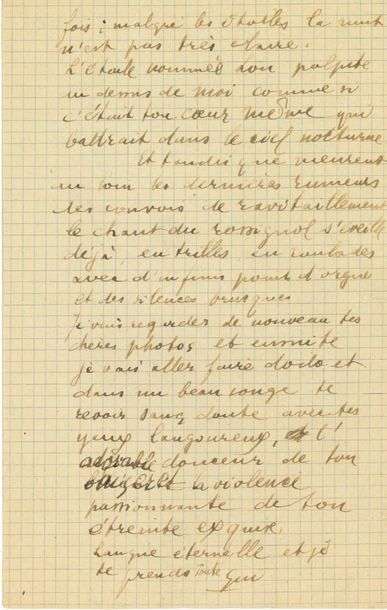 fois ; malgré les étoiles la nuit
n'est pas très claire.
L'étoile nommée Lou palpite
au dessus de moi comme si
c'était ton cœur même qui
battrait dans le ciel nocturne
Et tandis que meurent
au loin les dernières rumeurs
des convois de ravitaillement
le chant du rossignol s'éveille
déjà, en trilles, en roulades
avec d'infinis points d'orgue
et des silences brusques
Je vais regarder de nouveau tes
chères photos et ensuite
je vais aller faire dodo et
dans un beau songe te
revoir sans doute avec tes
yeux langoureux, et l'
adorable douceur de ton
la violence
passionnante de ton
étreinte exquise
Langue éternelle et je
te prends toute qui